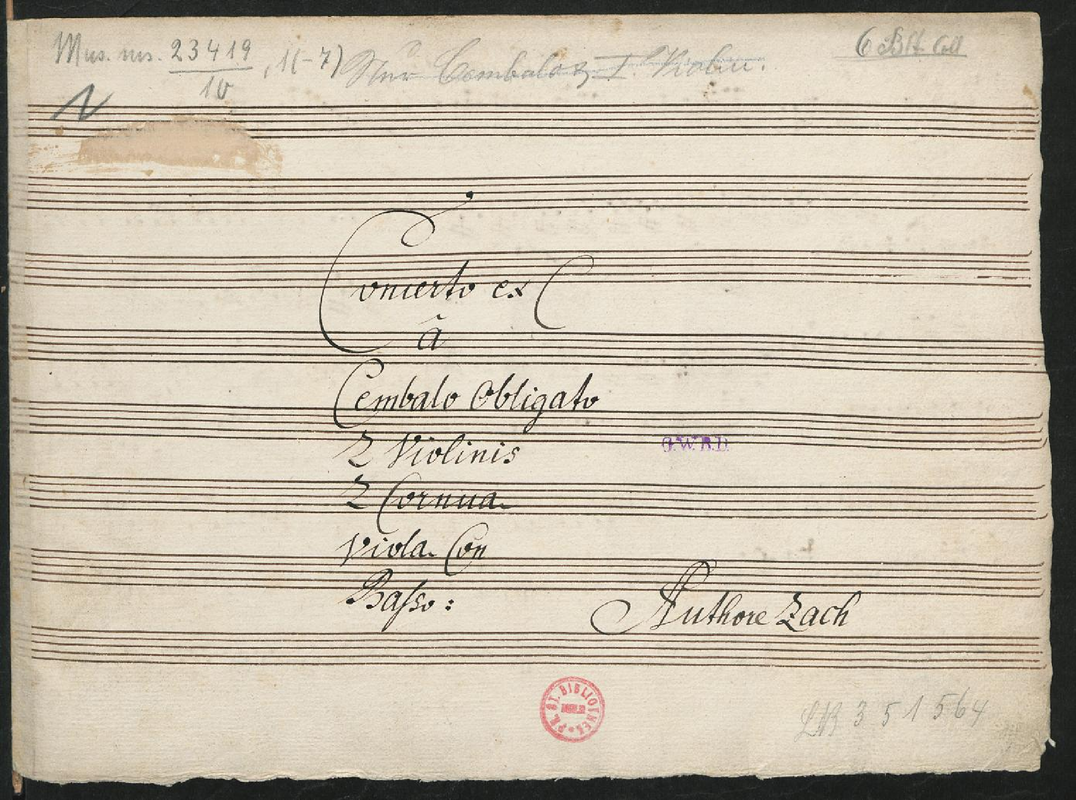 Mus. ms. 23419 , 1(-7) Nur Cembalo u. I. Violin.
10
6 Bll. Coll
N
Concerto ex C
â
Cembalo Obligato
2 Violinis
O.W.B.D.
2 Cornua
Viola Con
Baſso:
Authore Zach
PR. ST. BIBLIOTHEK BERLIN
351564